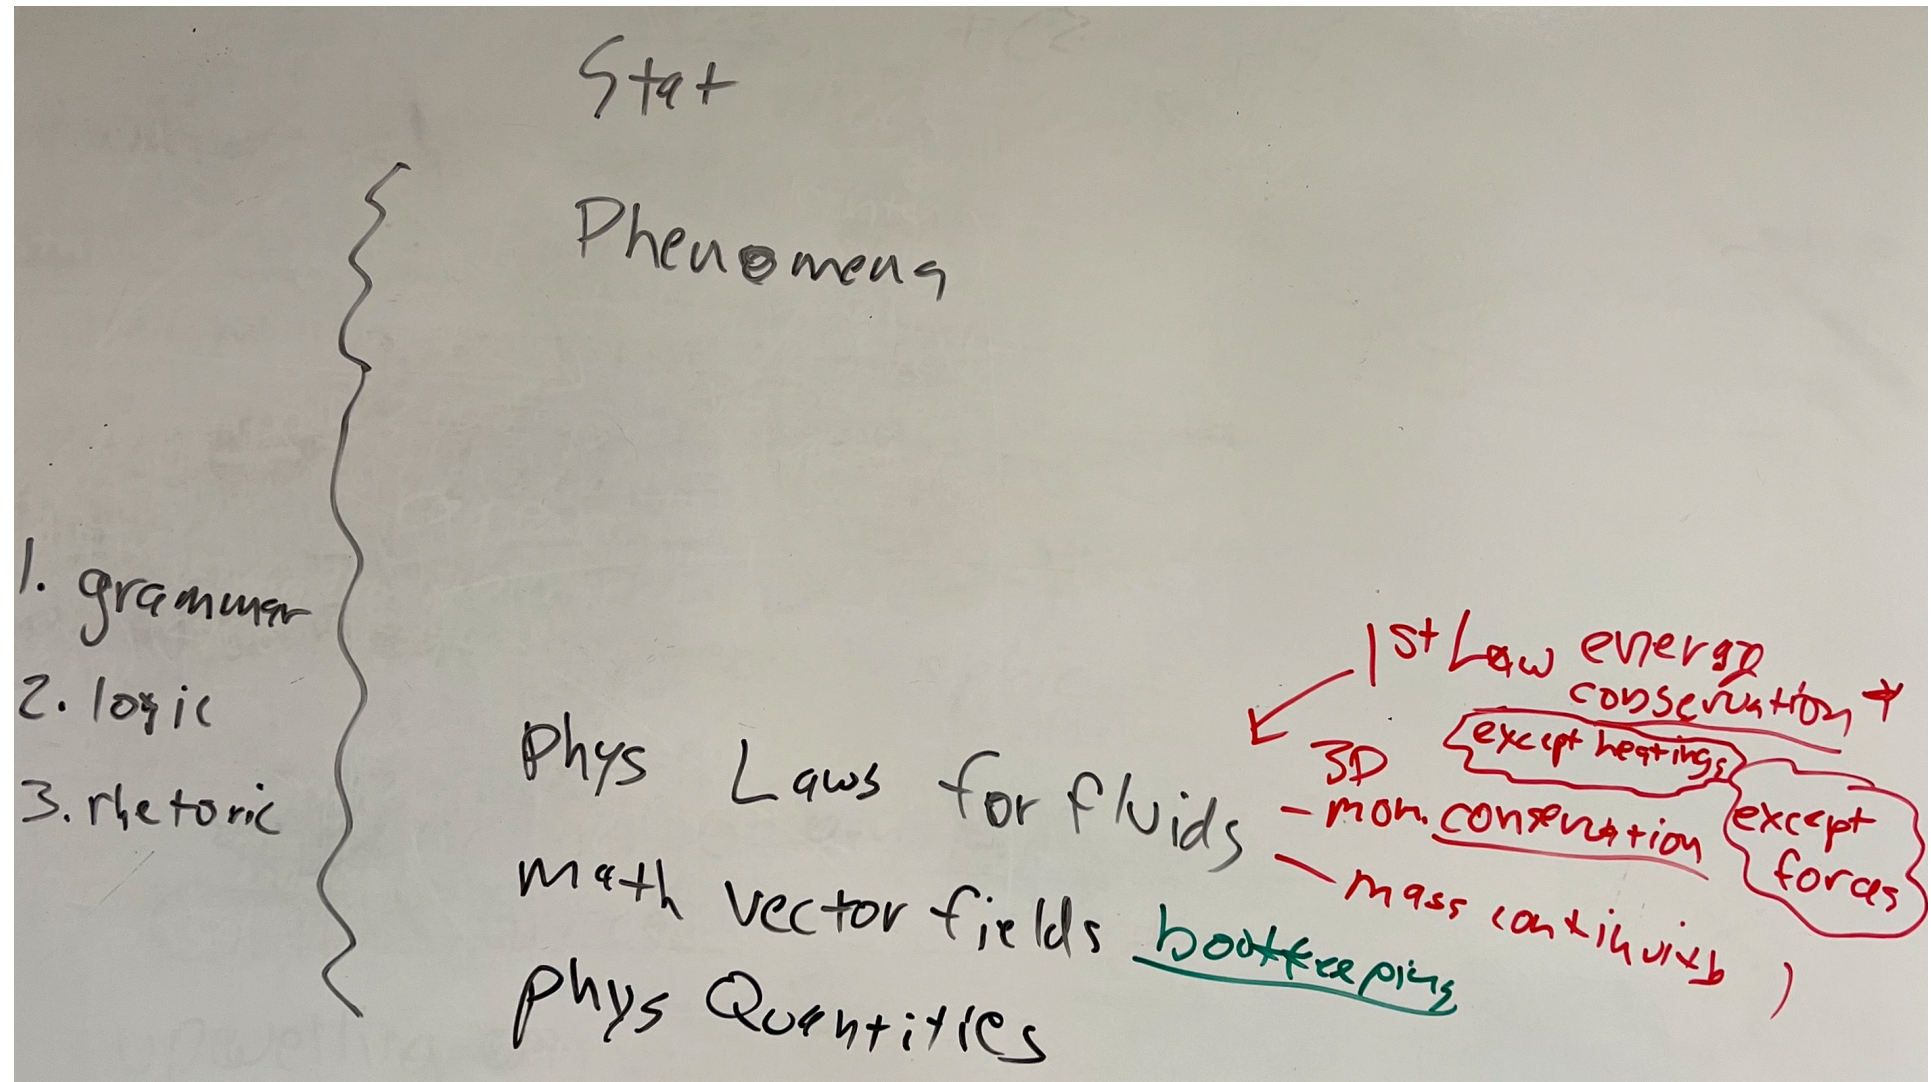 Stat
Phenomena
1. grammar
2. logic
3. rhetoric
Phys Laws for fluids
math vector fields bookkeeping
phys Quantities
1st Law energy
conservation
except heatings
3D
- mom. conservation
except
forces
- mass continuity